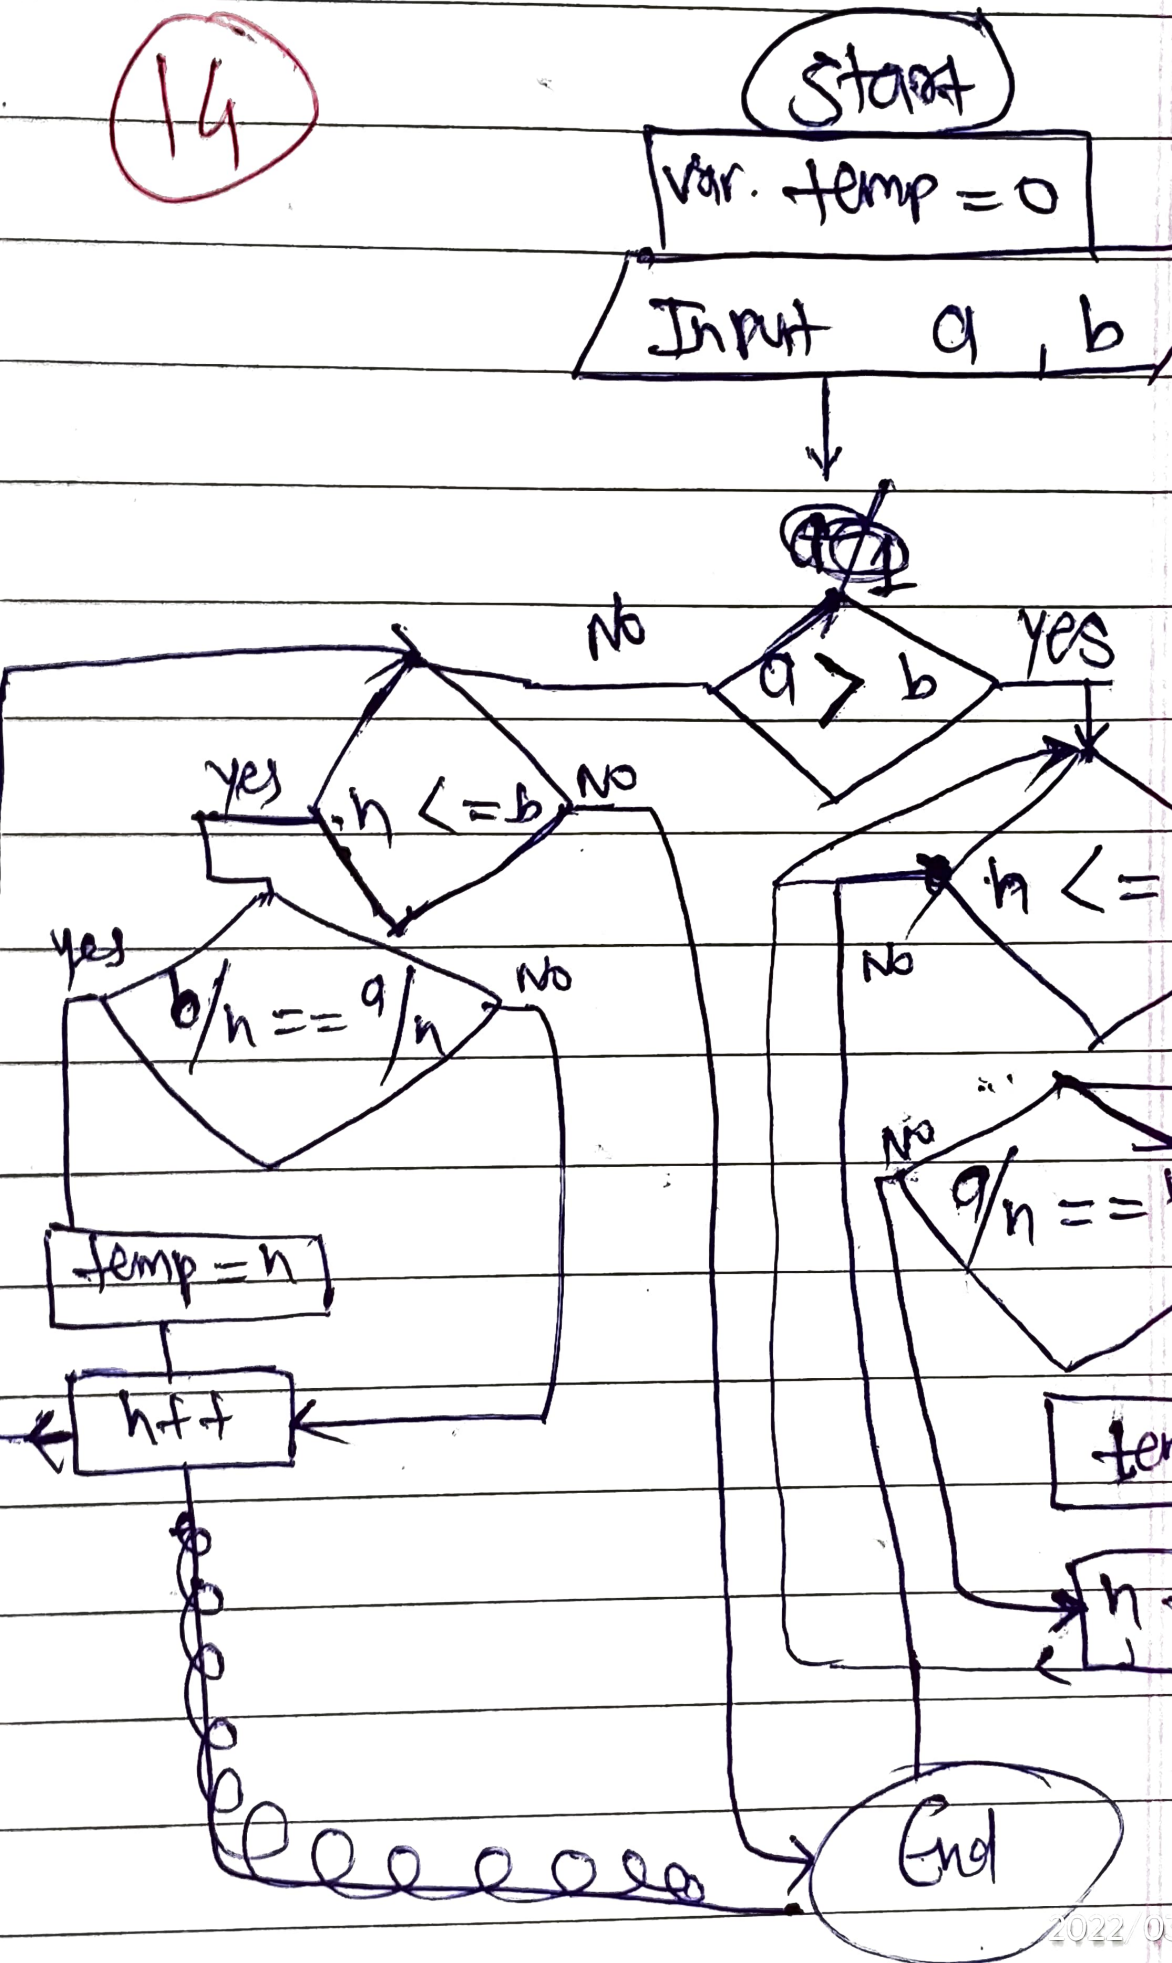 14
Start
var. temp = 0
Input a, b
No
yes
a > b
yes
n <= b
No
n <=
No
yes
b/n == a/n
No
No
a/n ==
temp = n
n++
n
End